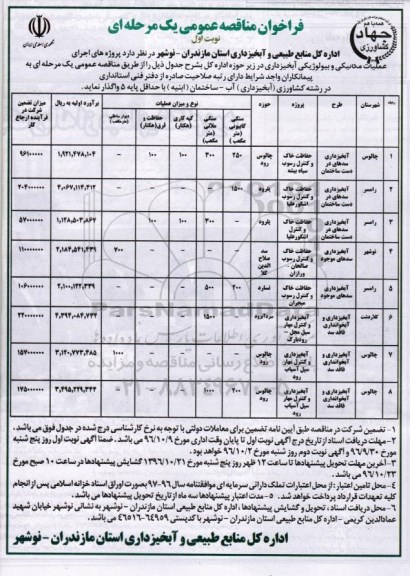 فراخوان مناقصه عمومی یک مرحله ای
نوبت اول
جهاد کشاورزی
اداره کل منابع طبیعی و آبخیزداری استان مازندران - نوشهر در نظر دارد پروژه های اجرای
عملیات مکانیکی و بیولوژیکی آبخیزداری در زیر حوزه اداره کل بشرح جدول ذیل را از طریق مناقصه عمومی یک مرحله ای به
پیمانکاران واجد شرایط دارای رتبه صلاحیت صادره از دفتر فنی استانداری
در رشته کشاورزی (آبخیزداری) آب - ساختمان (ابنیه) با حداقل پایه ۵ واگذار نماید.
شهرستان طرح پروژه حوزه نوع و میزان عملیات برآورد اولیه به ریال میزان تضمین شرکت در فرآیند ارجاع کار
سنگی گابیونی (متر مکعب) سنگی ملاتی (متر مکعب) کپه کاری (هکتار) حفاظت و قرق (هکتار)
۱ چالوس آبخیزداری سدهای در دست ساختمان حفاظت خاک و کنترل رسوب سیاه بیشه چالوس رود ۲۵۰ ۳۰۰ ۱۰۰ ۱۰۰ - ۱,۹۲۱,۴۷۸,۱۰۴ ۹۶۱۰۰۰۰۰
۲ رامسر آبخیزداری سدهای در دست ساختمان حفاظت خاک و کنترل رسوب ۱۵۰۰ - - - - ۴,۰۶۷,۱۱۴,۴۱۲ ۲۰۴۰۰۰۰۰۰
۳ رامسر آبخیزداری سدهای در دست ساختمان حفاظت خاک و کنترل رسوب - ۳۰۰ ۱۰۰ ۱۰۰ - ۱,۱۲۸,۵۰۳,۸۶۲ ۵۷۰۰۰۰۰۰
۴ نوشهر آبخیزداری سدهای موجود حفاظت خاک و کنترل رسوب صالحان - ورازان سد صلاح الدین کلا - - - - ۷۰۰ ۲,۱۸۴,۵۴۱,۴۳۹ ۱۱۰۰۰۰۰۰۰
۵ رامسر آبخیزداری سدهای موجود حفاظت خاک و کنترل رسوب میجران نسارد ۲۰۰ ۵۰۰ - - - ۲,۱۰۰,۱۴۲,۳۳۹ ۱۰۶۰۰۰۰۰۰
۶ کلاردشت آبخیزداری و آبخوانداری فاقد سد آبخیزداری و کنترل مهار سیل مجل - رودبارک سردآبرود - ۱۵۰۰ - - - ۴,۳۹۴,۰۸۴,۷۳۲ ۲۲۰۰۰۰۰۰۰
۷ چالوس آبخیزداری و آبخوانداری فاقد سد آبخیزداری و کنترل مهار سیل آسیاب رود چالوس رود - - - - ۱۰۰۰ ۳,۱۲۰,۷۷۳,۴۸۵ ۱۵۷۰۰۰۰۰۰
۸ چالوس آبخیزداری و آبخوانداری فاقد سد آبخیزداری و کنترل مهار سیل آسیاب رود چالوس رود ۲۰۰ ۱۰۰۰ - - - ۳,۴۹۵,۲۲۹,۳۴۲ ۱۷۵۰۰۰۰۰۰
۱- تضمین شرکت در مناقصه طبق آیین نامه تضمین برای معاملات دولتی با توجه به نرخ کارشناسی درج شده در جدول فوق می باشد.
۲- مهلت دریافت اسناد از تاریخ درج آگهی نوبت اول تا پایان وقت اداری مورخ ۹۶/۱۰/۹ می باشد. ضمنا آگهی نوبت اول روز پنج شنبه
مورخ ۹۶/۹/۳۰ و آگهی نوبت دوم روز شنبه مورخ ۹۶/۱۰/۲ خواهد بود.
۳- آخرین مهلت تحویل پیشنهادها تا ساعت ۱۲ ظهر روز پنج شنبه مورخ ۱۳۹۶/۱۰/۲۱ گشایش پیشنهادها در ساعت ۱۰ صبح مورخ
۹۶/۱۰/۲۳ می باشد.
۴- محل تامین اعتبار: از محل اعتبارات تملک دارائی سرمایه ای موافقتنامه سال ۹۶-۹۷ بصورت اوراق اسناد خزانه اسلامی پس از انجام
کلیه تعهدات قرارداد پرداخت خواهد شد. ۵- مدت اعتبار پیشنهادها سه ماه از تاریخ تحویل پیشنهادها می باشد.
۶- محل دریافت اسناد، تحویل و گشایش پیشنهادها، اداره کل منابع طبیعی استان مازندران - نوشهر به نشانی نوشهر خیابان شهید
عمادالدین کریمی - اداره کل منابع طبیعی استان مازندران - نوشهر با کدپستی ۶۴۹۵۹-۴۶۵۱۶ می باشد.
اداره کل منابع طبیعی و آبخیزداری استان مازندران - نوشهر